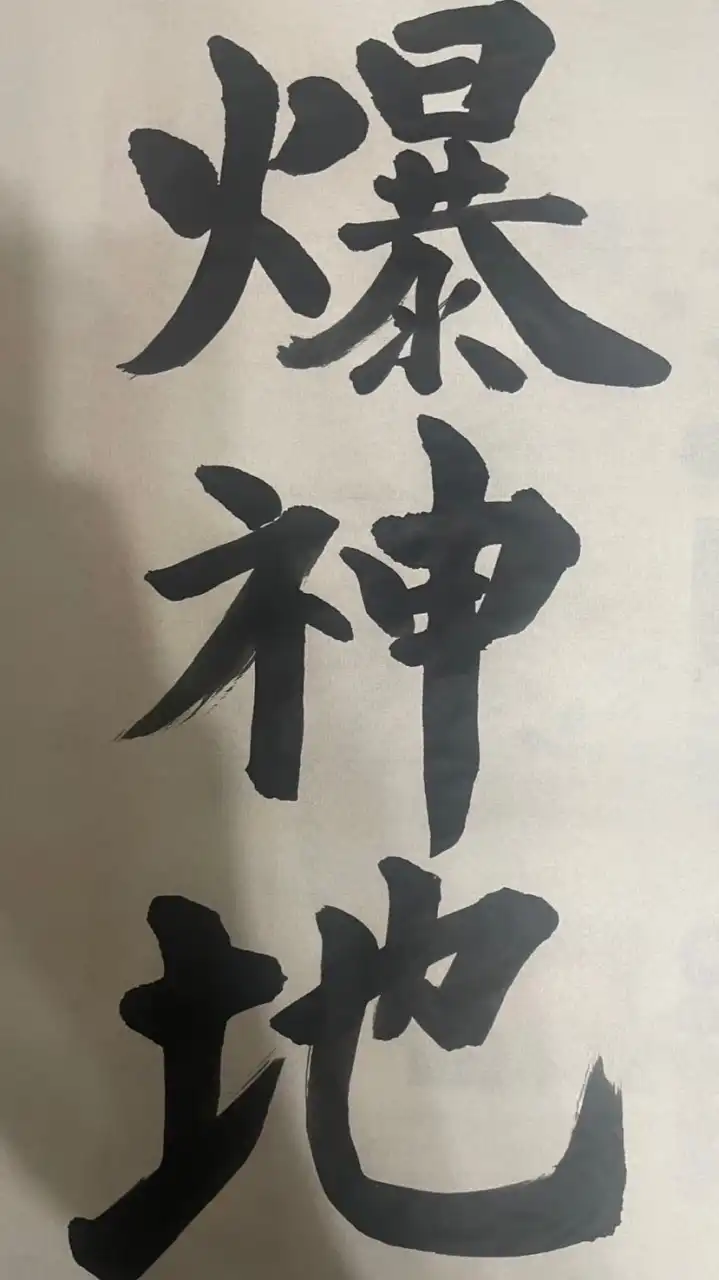 爆神地